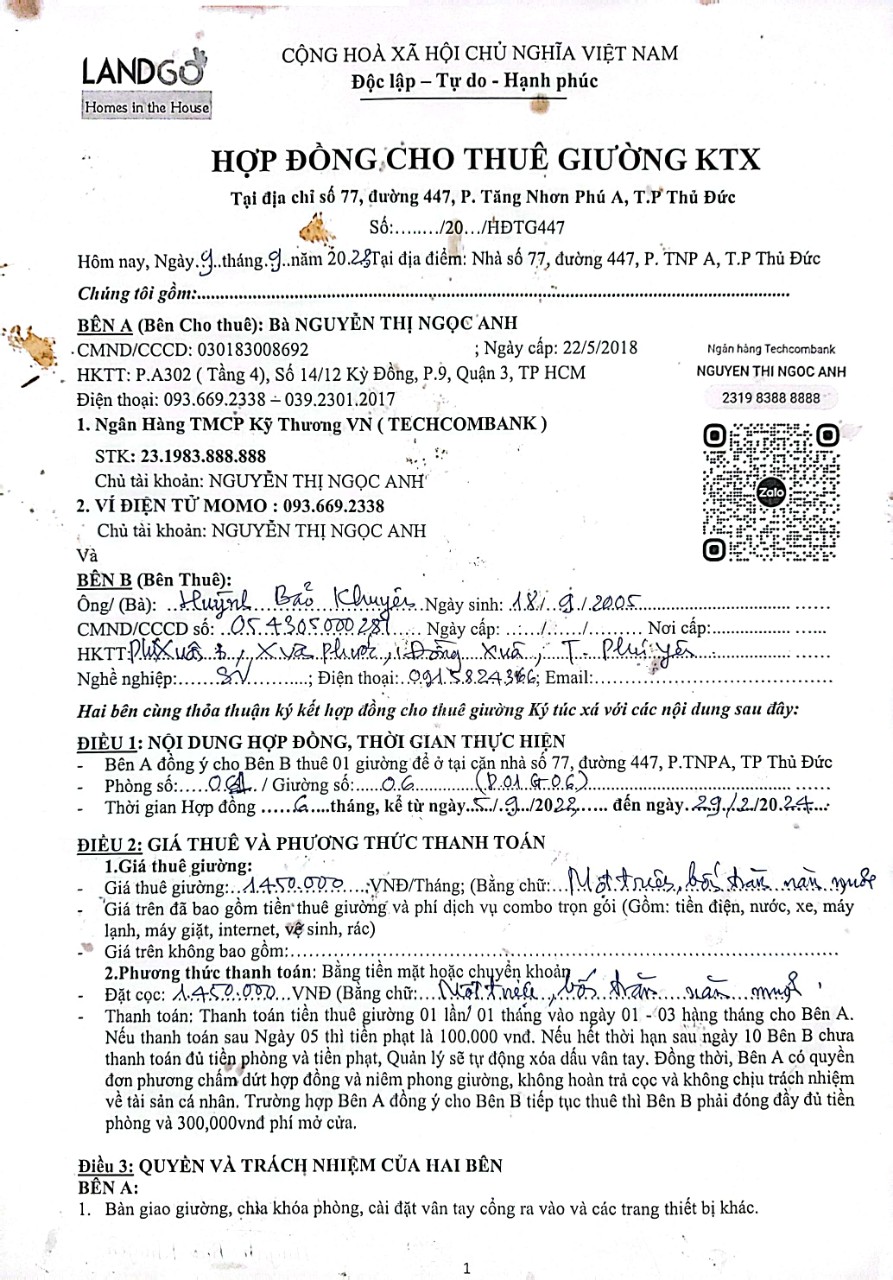 LANDGO
Homes in the House
CỘNG HOÀ XÃ HỘI CHỦ NGHĨA VIỆT NAM
Độc lập – Tự do - Hạnh phúc
HỢP ĐỒNG CHO THUÊ GIƯỜNG KTX
Tại địa chỉ số 77, đường 447, P. Tăng Nhơn Phú A, T.P Thủ Đức
Số:......../20.../HĐTG447
Hôm nay, Ngày.9..tháng.9..năm 20.23Tại địa điểm: Nhà số 77, đường 447, P. TNP A, T.P Thủ Đức
Chúng tôi gồm:......................................................................................................
BÊN A (Bên Cho thuê): Bà NGUYỄN THỊ NGỌC ANH
CMND/CCCD: 030183008692 ; Ngày cấp: 22/5/2018
HKTT: P.A302 ( Tầng 4), Số 14/12 Kỳ Đồng, P.9, Quận 3, TP HCM
Điện thoại: 093.669.2338 – 039.2301.2017
Ngân hàng Techcombank
NGUYEN THI NGOC ANH
2319 8388 8888
Zalo
1. Ngân Hàng TMCP Kỹ Thương VN ( TECHCOMBANK )
STK: 23.1983.888.888
Chủ tài khoản: NGUYỄN THỊ NGỌC ANH
2. VÍ ĐIỆN TỬ MOMO : 093.669.2338
Chủ tài khoản: NGUYỄN THỊ NGỌC ANH
Và
BÊN B (Bên Thuê):
Ông/ (Bà): Huỳnh Bảo Khuyên Ngày sinh: 18/ 9 / 2005
CMND/CCCD số: 054305000281 Ngày cấp: ....../....../........ Nơi cấp:..................
HKTT: Phú Xuân B, Xuân Phước, Đồng Xuân, T. Phú Yên
Nghề nghiệp: SV ; Điện thoại: Email:..................
Hai bên cùng thỏa thuận ký kết hợp đồng cho thuê giường Ký túc xá với các nội dung sau đây:
ĐIỀU 1: NỘI DUNG HỢP ĐỒNG, THỜI GIAN THỰC HIỆN
- Bên A đồng ý cho Bên B thuê 01 giường để ở tại căn nhà số 77, đường 447, P.TNPA, TP Thủ Đức
- Phòng số: 01 / Giường số: 06 (P.01 G.06)
- Thời gian Hợp đồng 6 tháng, kể từ ngày 5 / 9 /2023 đến ngày 29 / 2 /20.24
ĐIỀU 2: GIÁ THUÊ VÀ PHƯƠNG THỨC THANH TOÁN
1.Giá thuê giường:
- Giá thuê giường: 1.450.000 VNĐ/Tháng; (Bằng chữ: Một triệu, bốn trăm năm mươi
- Giá trên đã bao gồm tiền thuê giường và phí dịch vụ combo trọn gói (Gồm: tiền điện, nước, xe, máy
lạnh, máy giặt, internet, vệ sinh, rác)
- Giá trên không bao gồm:..................................................................................
2.Phương thức thanh toán: Bằng tiền mặt hoặc chuyển khoản
- Đặt cọc: 1.450.000 VNĐ (Bằng chữ: Một triệu, bốn trăm năm mươi
- Thanh toán: Thanh toán tiền thuê giường 01 lần/ 01 tháng vào ngày 01 - 03 hàng tháng cho Bên A.
Nếu thanh toán sau Ngày 05 thì tiền phạt là 100.000 vnđ. Nếu hết thời hạn sau ngày 10 Bên B chưa
thanh toán đủ tiền phòng và tiền phạt, Quản lý sẽ tự động xóa dấu vân tay. Đồng thời, Bên A có quyền
đơn phương chấm dứt hợp đồng và niêm phong giường, không hoàn trả cọc và không chịu trách nhiệm
về tài sản cá nhân. Trường hợp Bên A đồng ý cho Bên B tiếp tục thuê thì Bên B phải đóng đầy đủ tiền
phòng và 300,000vnđ phí mở cửa.
Điều 3: QUYỀN VÀ TRÁCH NHIỆM CỦA HAI BÊN
BÊN A:
1. Bàn giao giường, chìa khóa phòng, cài đặt vân tay cổng ra vào và các trang thiết bị khác.
1